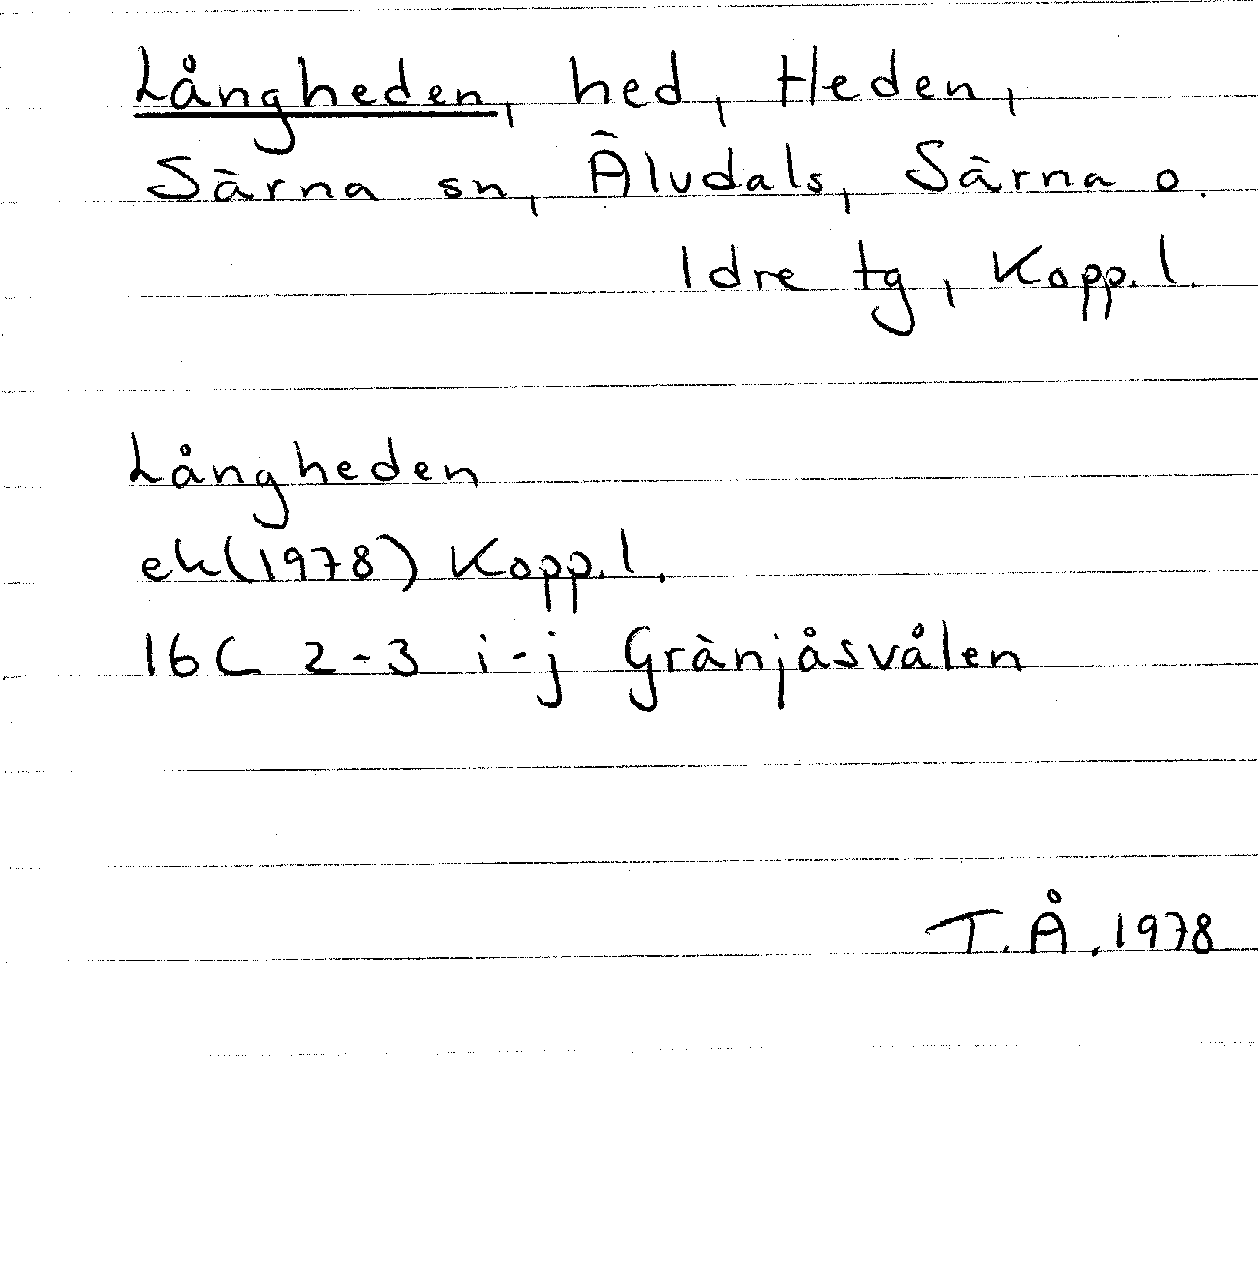 Långheden, hed, Heden,
Särna sn, Älvdals, Särna o.
Idre tg, Kopp. l.
Långheden
ek(1978) Kopp. l.
16C 2-3 i-j Gränjåsvålen
T.Å. 1978